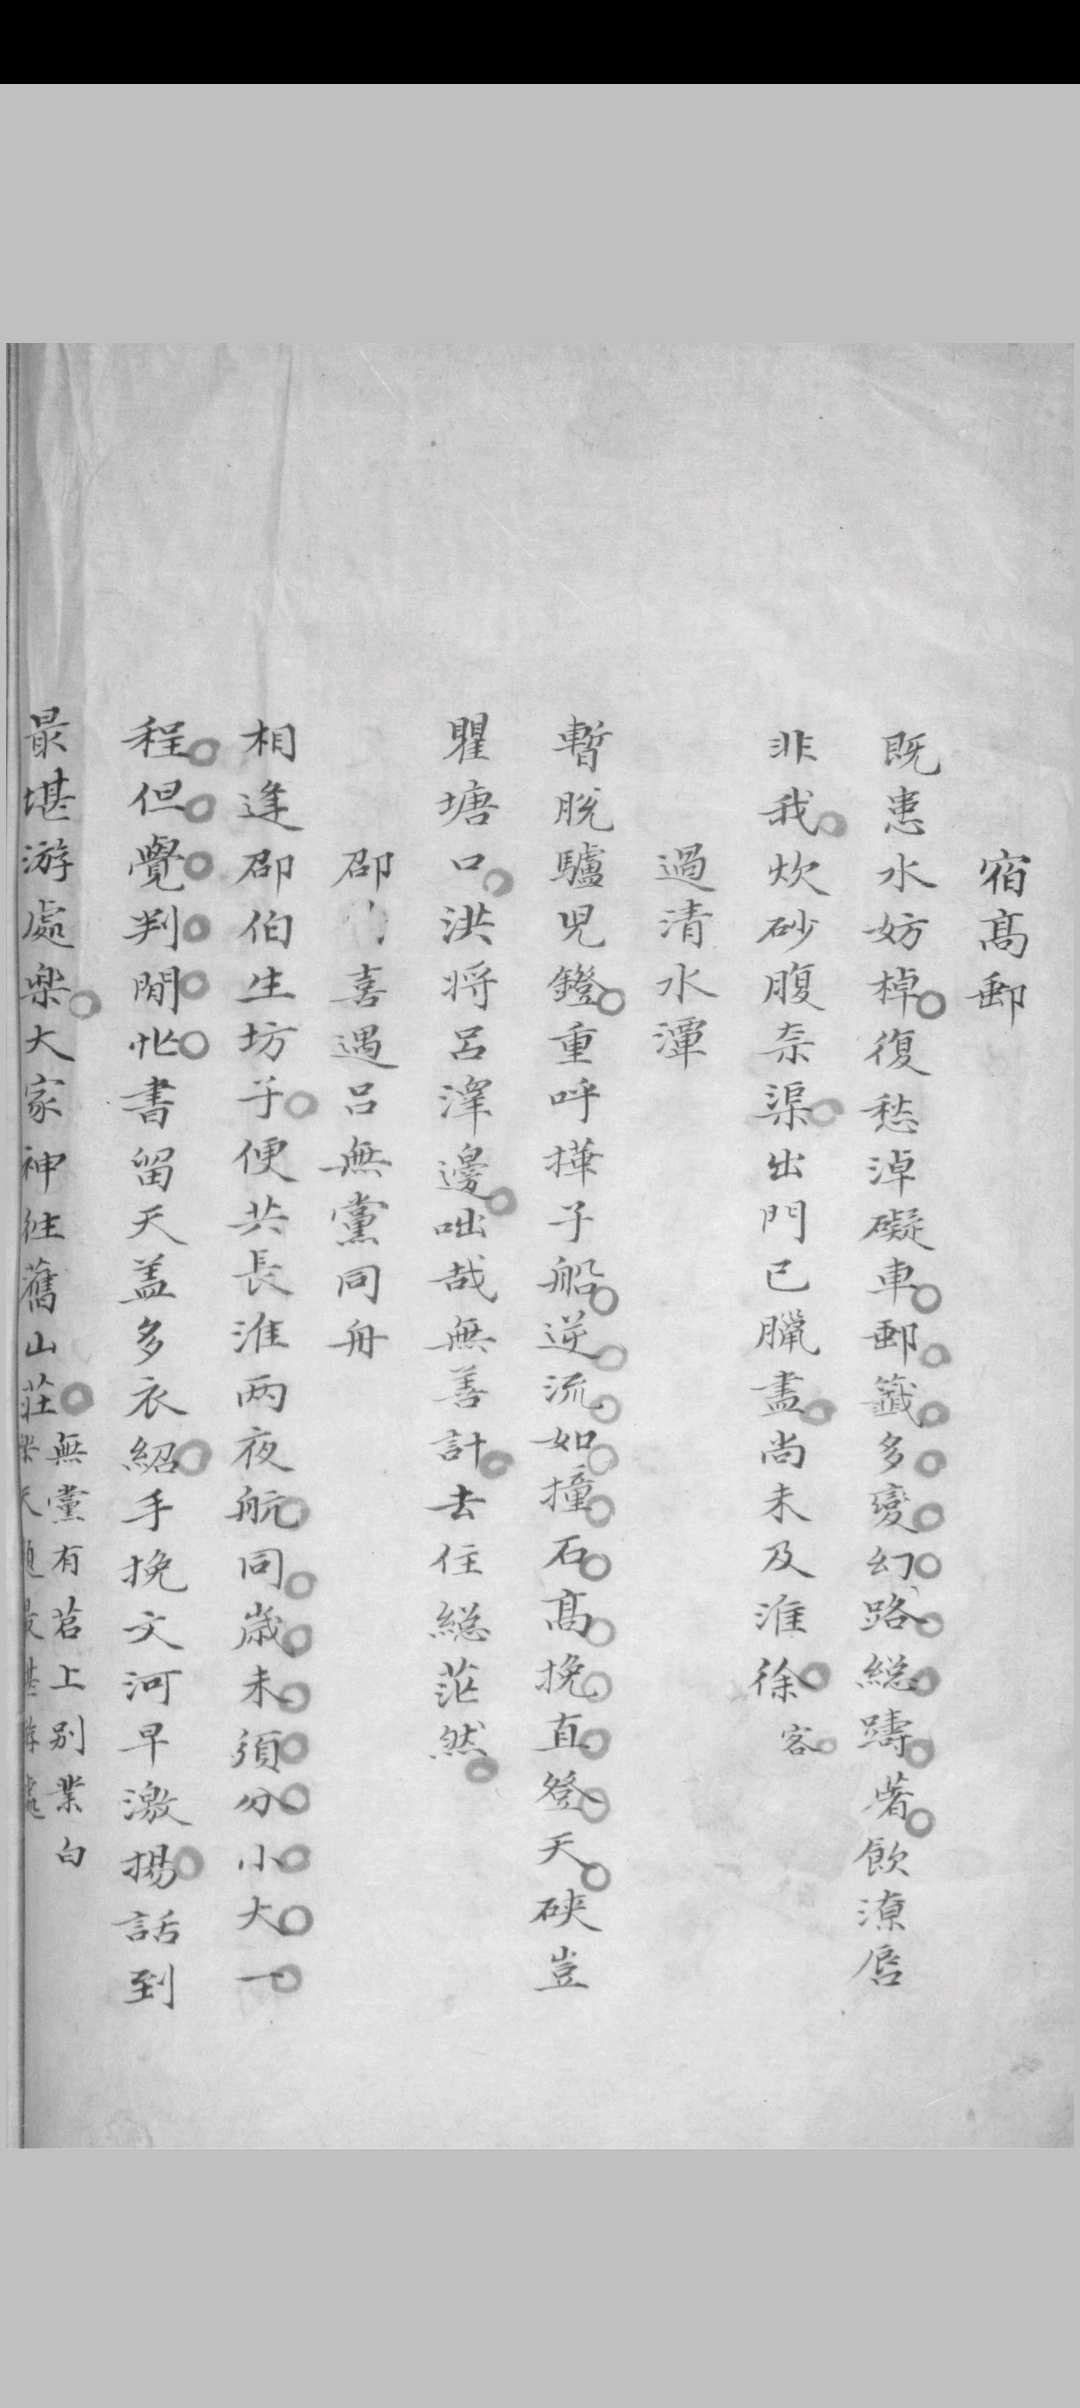 宿髙郵
既患水妨棹復愁淖礙車郵籤多變幻路総躊著飲潦唇
非我炊砂腹柰渠出門已臘盡尚未及淮徐客
過清水潭
暫脫驢兒鐙重呼擇子船逆流如撞石髙挽直登天硤豈
瞿塘口洪将呂滓邊咄哉無善計去住総茫然
邵喜遇呂無黨同舟
相逢邵伯生坊子便共長淮两夜航同歳未須分小大一
程但覺判閒忙書留天盖多衣紹手挽文河早激揚話到
最堪游處樂大家神徃舊山莊
無黨有苕上别業白